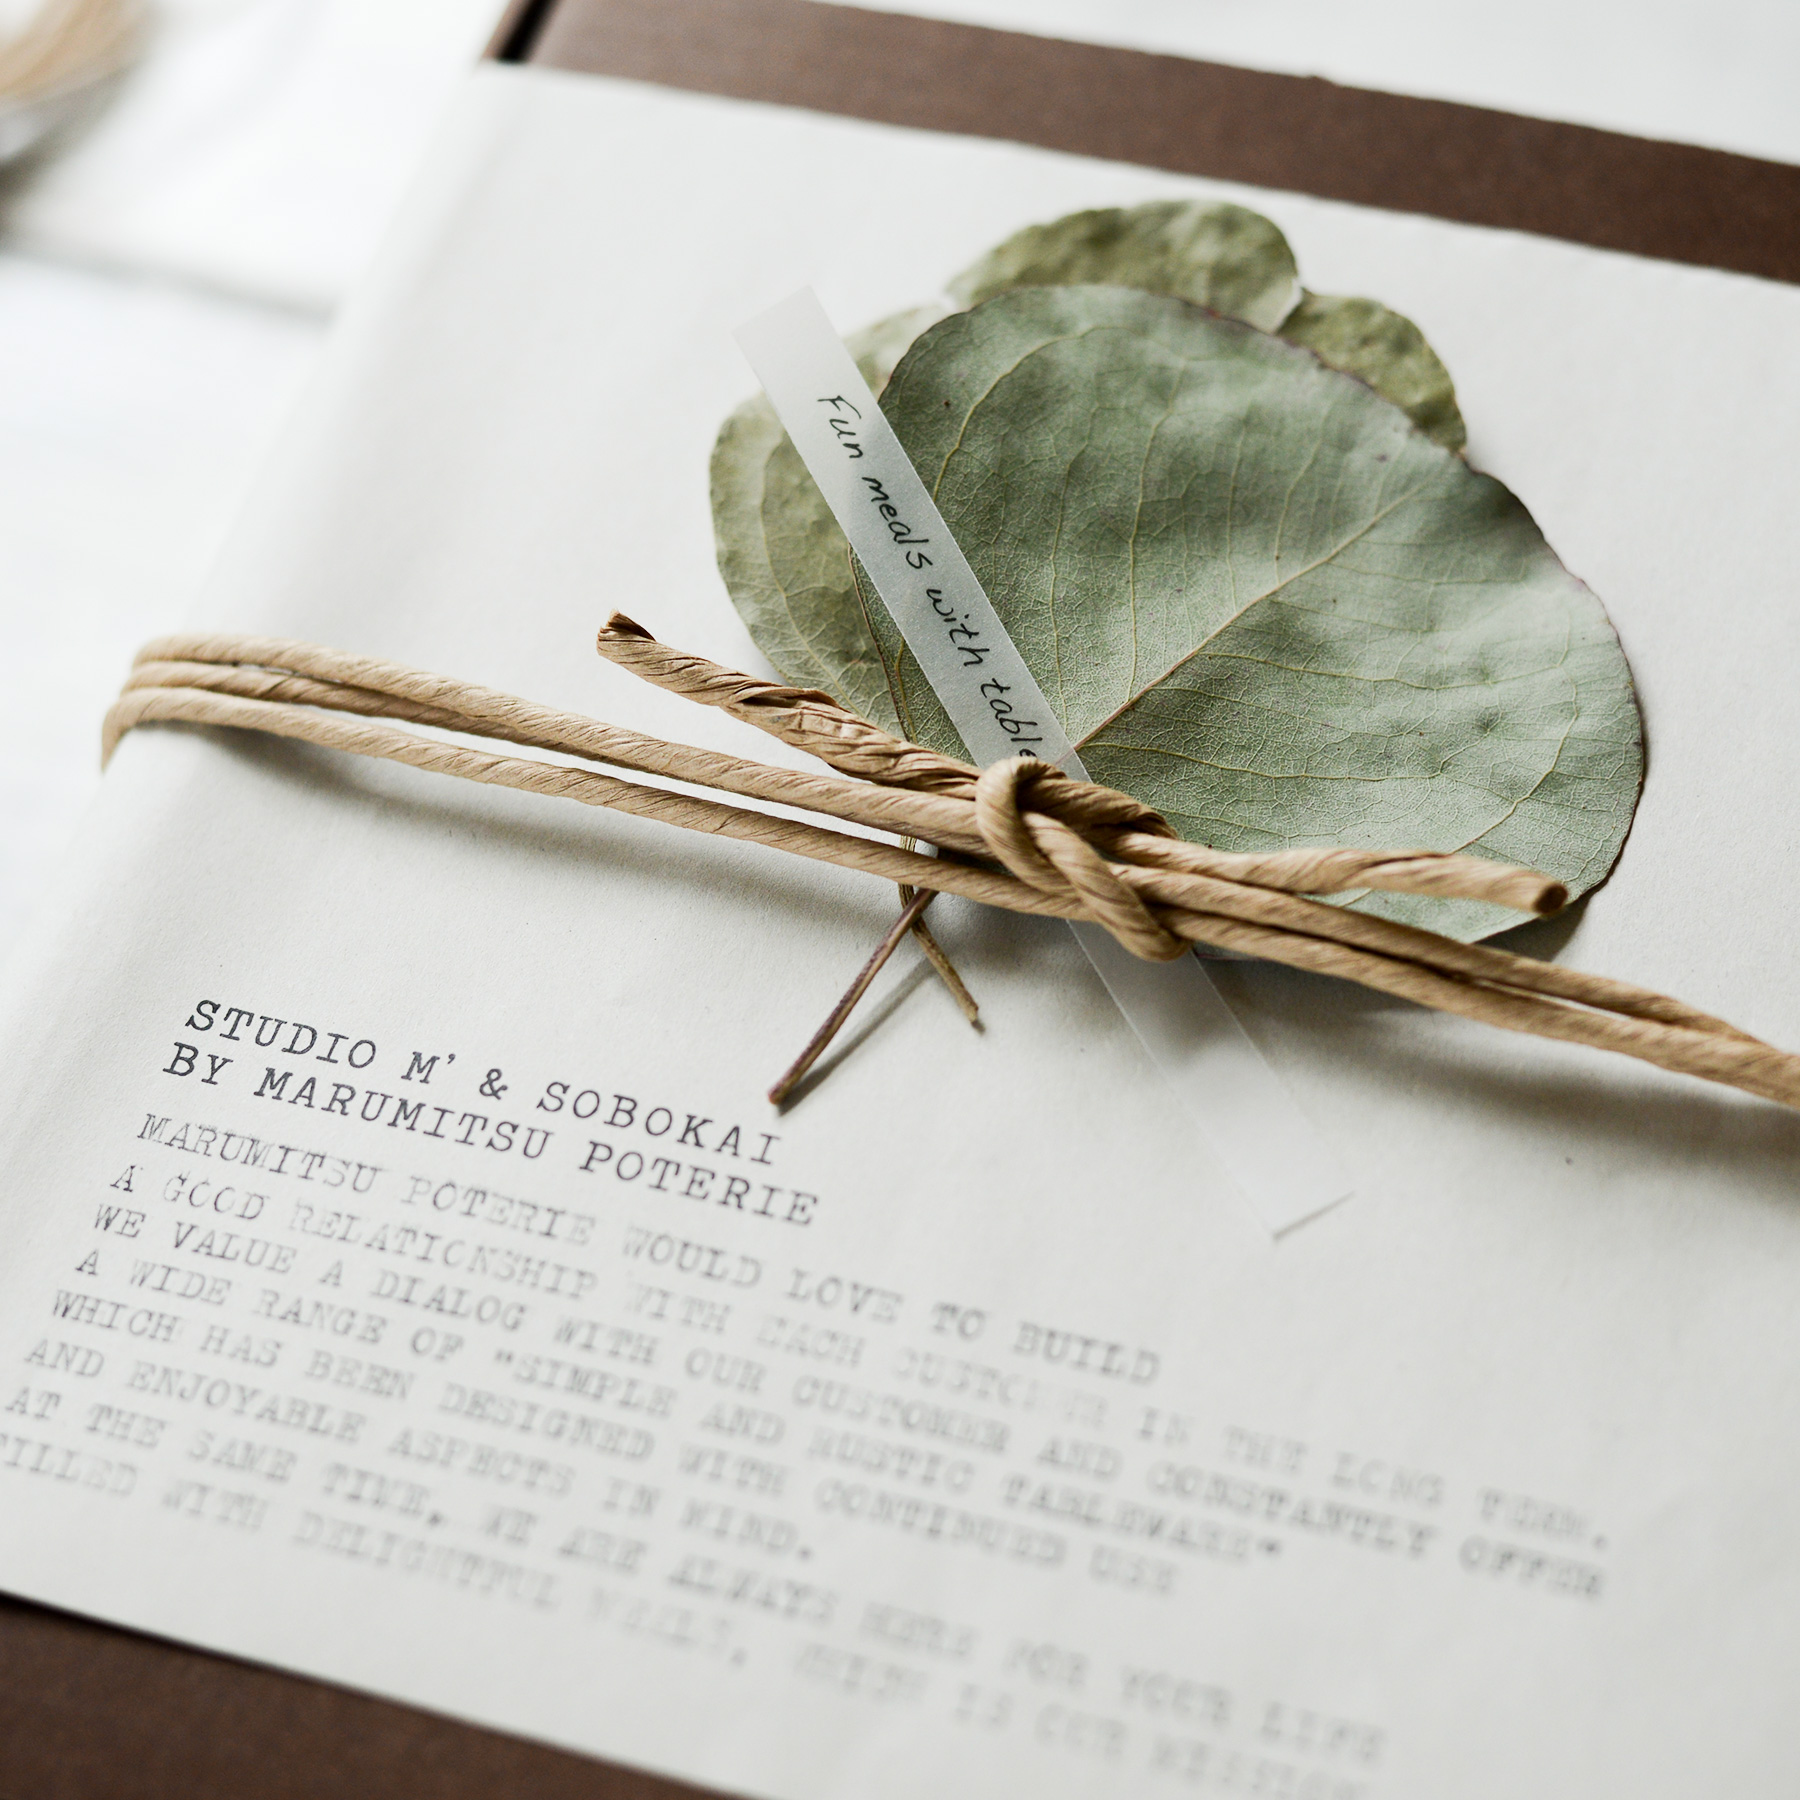 Fun meals with table
STUDIO M' & SOBOKAI
BY MARUMITSU POTERIE
MARUMITSU POTERIE WOULD LOVE TO BUILD
A GOOD RELATIONSHIP WITH EACH CUSTOMER IN THE LONG TERM.
WE VALUE A DIALOG WITH OUR CUSTOMER AND CONSTANTLY OFFER
A WIDE RANGE OF "SIMPLE AND RUSTIC TABLEWARE"
WHICH HAS BEEN DESIGNED WITH CONTINUED USE
AND ENJOYABLE ASPECTS IN MIND.
AT THE SAME TIME, WE ARE ALWAYS HERE FOR YOUR LIFE
FILLED WITH DELIGHTFUL WHICH IS OUR MISSION